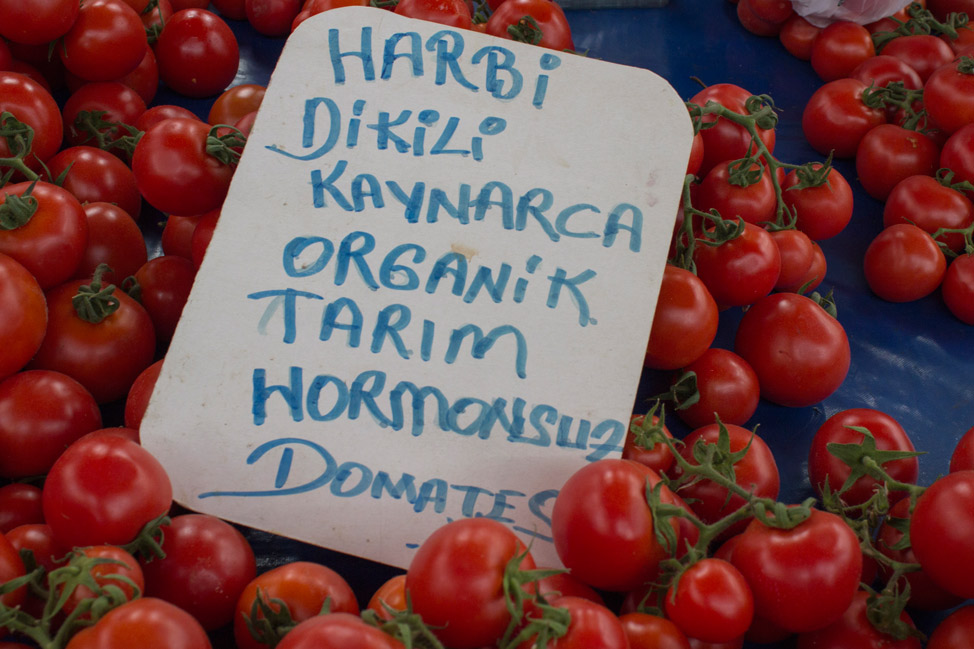 HARBi
DiKiLi
KAYNARCA
ORGANiK
TARIM
HORMONSUZ
DOMATES